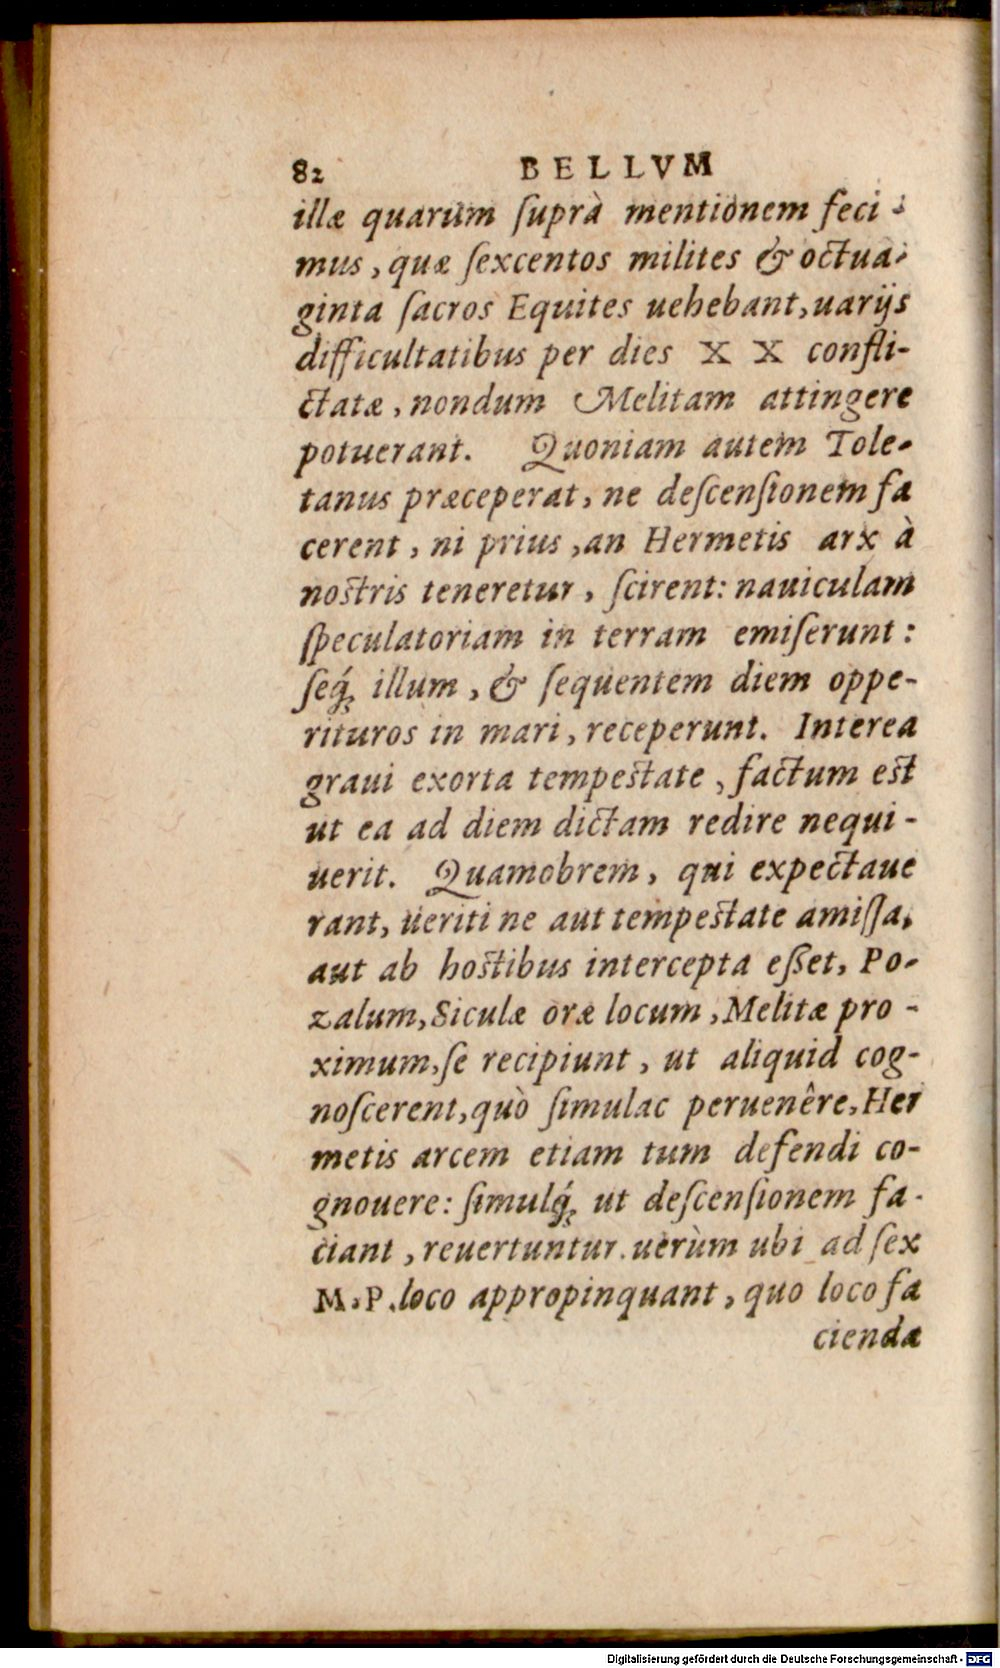 82 BELLVM
illæ quarum ſuprà mentionem feci-
mus, quæ ſexcentos milites & octua-
ginta ſacros Equites uehebant, uarijs
difficultatibus per dies X X confli-
ctatæ, nondum Melitam attingere
potuerant. Quoniam autem Tole-
tanus præceperat, ne deſcenſionem fa
cerent, ni prius, an Hermetis arx à
noſtris teneretur, ſcirent: nauiculam
ſpeculatoriam in terram emiſerunt:
ſeq́; illum, & ſequentem diem oppe-
rituros in mari, receperunt. Interea
graui exorta tempeſtate, factum eſt
ut ea ad diem dictam redire nequi-
uerit. Quamobrem, qui expectaue
rant, ueriti ne aut tempeſtate amiſſa,
aut ab hoſtibus intercepta eſſet, Po-
zalum, Siculæ oræ locum, Melitæ pro-
ximum, ſe recipiunt, ut aliquid cog-
noſcerent, quò ſimulac peruenêre, Her
metis arcem etiam tum defendi co-
gnouere: ſimulq́; ut deſcenſionem fa-
ciant, reuertuntur. uerùm ubi ad ſex
M. P. loco appropinquant, quo loco fa
cienda
Digitalisierung gefördert durch die Deutsche Forschungsgemeinschaft - DFG